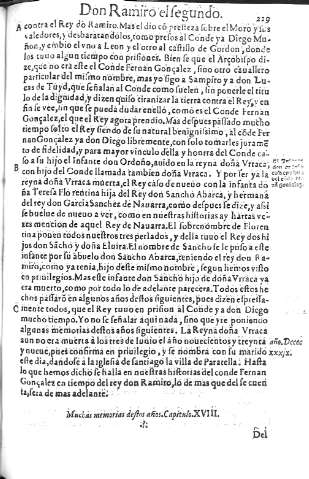 Don Ramiro el segundo. 229
A contra el Rey dō Ramiro. Mas el dio cō presteza sobre el Moro y sus
valedores, y desbaratandolos, tomo presos al Conde ya Diego Mu-
ñon, y embio el vno a Leon y el otro al castillo de Gordon, donde
los tuuo algun tiempo con prisiones. Bien se que el Arçobispo di-
ze, que no era este el Conde Fernan Gonçalez, sino otro cauallero
particular del mismo nombre, mas yo sigo a Sampiro y a don Lu-
cas de Tuyd, que señalan al Conde como suelen, sin ponerle el titu
lo de la dignidad, y dizen quiso tiranizar la tierra contra el Rey, y en
fin se vee, sin que se pueda dudar en ello, como es el Conde Fernan
Gonçalez, el que el Rey agora prendio. Mas despues passado mucho
tiempo solto el Rey siendo de su natural benignissimo, al cōde Fer-
nan Gonçalez ya don Diego libremente, con solo tomarles jurame
to de fidelidad, y para mayor vinculo della y honrra del Conde ca-
so a su hijo el infante don Ordoño, auido en la reyna doña Vrraca
B con hija del Conde llamada tambien doña Vrraca. Y por ser ya la
reyna doña Vrraca muerta, el Rey caso de nueuo con la infanta do
ña Teresa Florentina hija del Rey don Sancho Abarca, y hermana
del rey don Garcia Sanchez de Nauarra, como despues se dize, y assi
se buelue de nueuo a ver, como en nuestras historias ay hartas ve-
zes mencion de aquel Rey de Nauarra. El sobrenombre de Floren
tina ponen todos nuestros tres perlados, y della tuuo el Rey dos hi
jos don Sācho y doña Eluira. El nombre de Sancho se le puso a este
infante por su abuelo don Sancho Abarca, teniendo el rey don Ra-
miro, como ya tenia, hijo deste mismo nombre, segun hemos visto
en priuilegios. Mas este infante don Sancho hijo de doña Vrraca ya
era muerto, como por todo lo de adelante parecera. Todos estos he
chos passarō en algunos años destos siguientes, pues dizen expressa-
C mente todos, que el Rey tuuo en prision al Conde y a don Diego
mucho tiempo. Yo no se señalar aqui nada, sino que yre poniendo
algunas memorias destos años siguientes. La Reyna doña Vrraca
aun no era muerta a los tres de Iunio el año nouecientos y treynta año. Dcccc
y nueue, pues confirma en priuilegio, y se nombra con su marido xxxix.
este dia, dandose a la iglesia de santiago la villa de Paratella. Hasta
lo que hemos dicho se halla en nuestras historias del conde Fernan
Gonçalez en tiempo del rey don Ramiro, lo de mas que del se cuen
ta, sera de mas adelante.
Muchas memorias destos años. Capitulo. XVIII.
Del